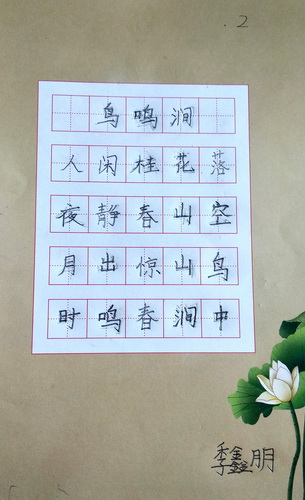 .2
鸟鸣涧
人闲桂花落
夜静春山空
月出惊山鸟
时鸣春涧中
李鑫朋